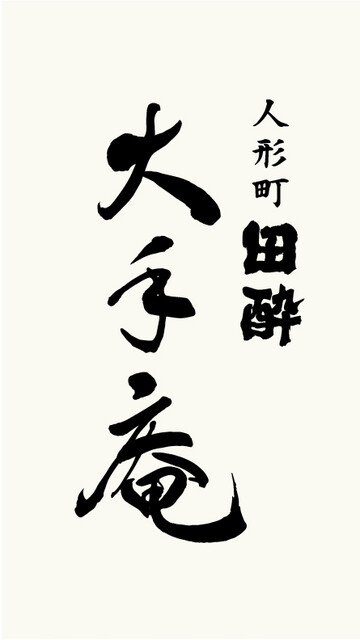 人形町
田酔
大手庵